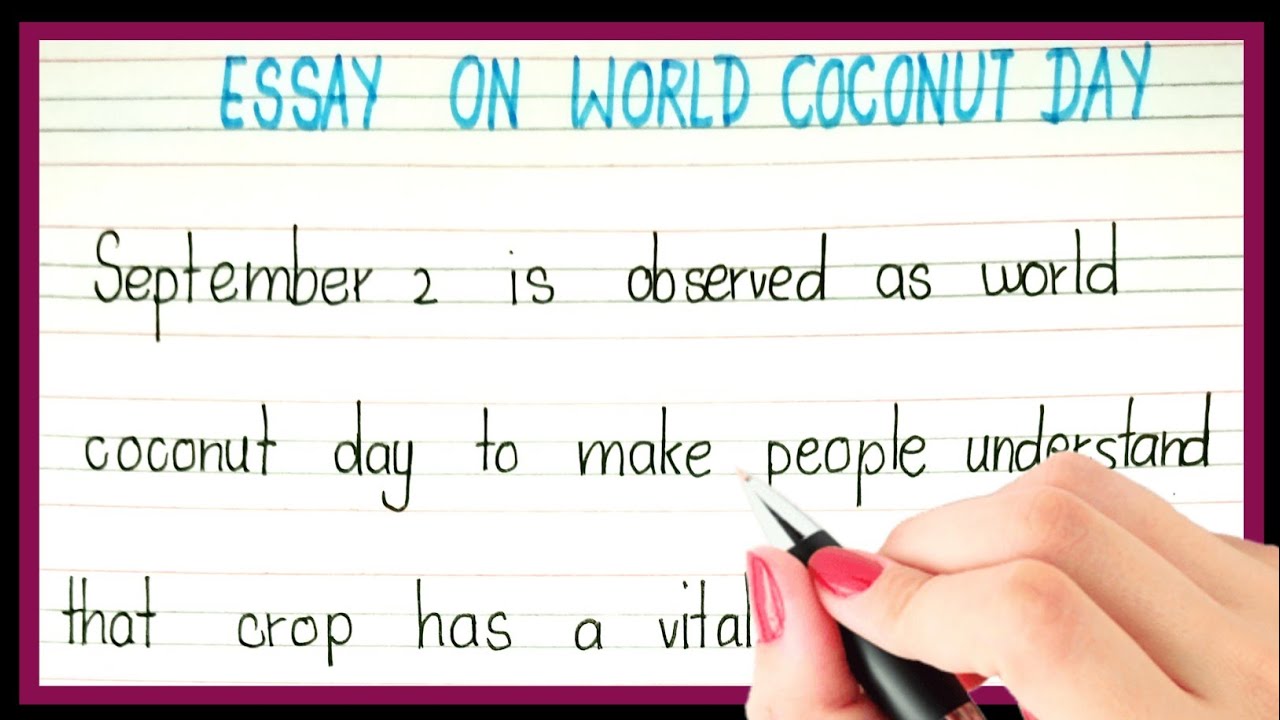 ESSAY ON WORLD COCONUT DAY
September 2 is observed as world
coconut day to make people understand
that crop has a vital